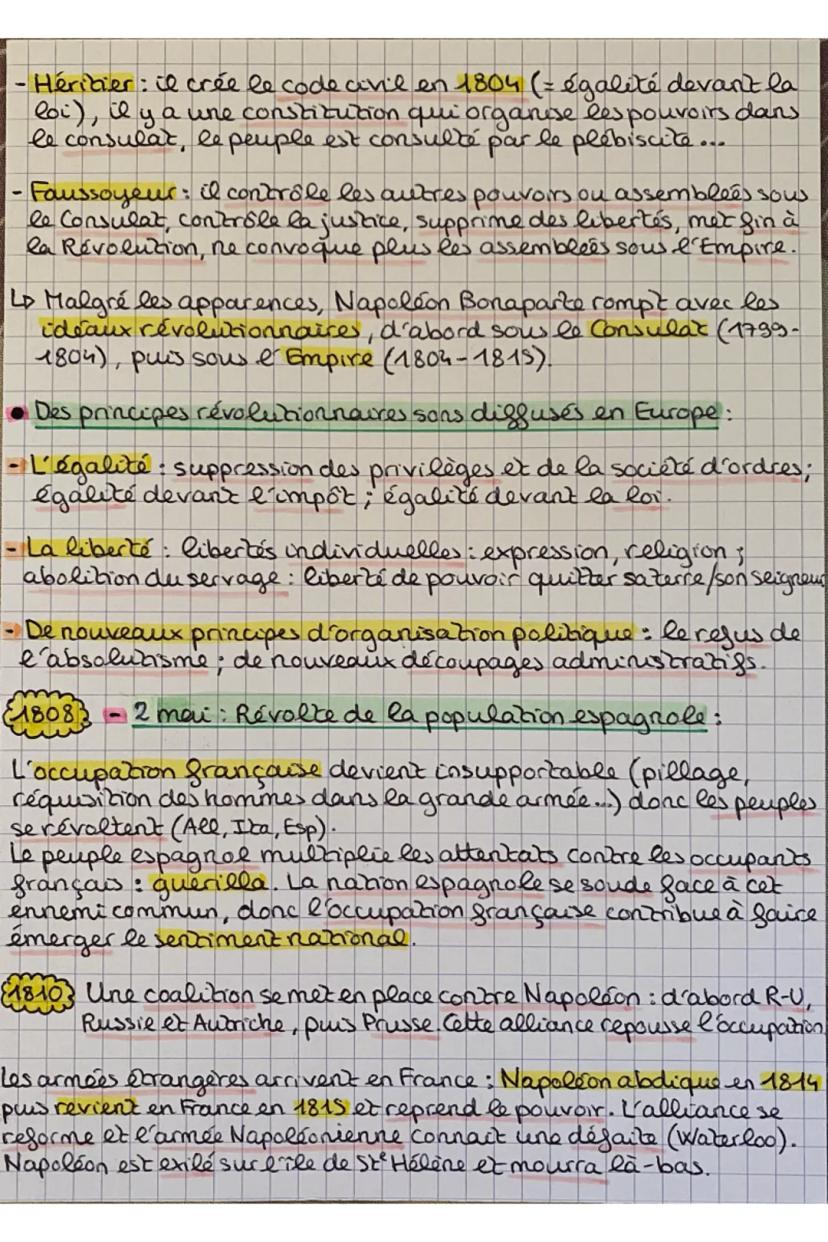 - Héritier : il crée le code civil en 1804 (= égalité devant la
loi), il y a une constitution qui organise les pouvoirs dans
le consulat, le peuple est consulté par le plébiscite...
- Faussoyeur : il contrôle les autres pouvoirs ou assembleés sous
le Consulat, contrôle la justice, supprime des libertés, met fin à
la Révolution, ne convoque plus les assembleés sous l'Empire.
↳ Malgré les apparences, Napoléon Bonaparte rompt avec les
idéaux révolutionnaires, d'abord sous le Consulat (1799-
1804), puis sous l'Empire (1804-1815).
• Des principes révolutionnaires sons diffusés en Europe :
- L'égalité : suppression des privilèges et de la société d'ordres ;
égalité devant l'impôt ; égalité devant la loi.
- La liberté : libertés individuelles : expression, religion ;
abolition du servage : liberté de pouvoir quitter sa terre/son seigneur
- De nouveaux principes d'organisation politique : le refus de
l'absolutisme ; de nouveaux découpages administratifs.
1808 - 2 mai : Révolte de la population espagnole :
L'occupation française devient insupportable (pillage,
réquisition des hommes dans la grande armée...) donc les peuples
se révoltent (All, Ita, Esp).
Le peuple espagnol multiplie les attentats contre les occupants
français : guérilla. La nation espagnole se soude face à cet
ennemi commun, donc l'occupation française contribue à faire
émerger le sentiment national.
1810 Une coalition se met en place contre Napoléon : d'abord R-U,
Russie et Autriche, puis Prusse. Cette alliance repousse l'occupation
Les armées étrangères arrivent en France : Napoléon abdique en 1814
puis revient en France en 1815 et reprend le pouvoir. L'alliance se
reforme et l'armée Napoléonienne connait une défaite (Waterloo).
Napoléon est exilé sur l'île de Ste Hélène et mourra là-bas.